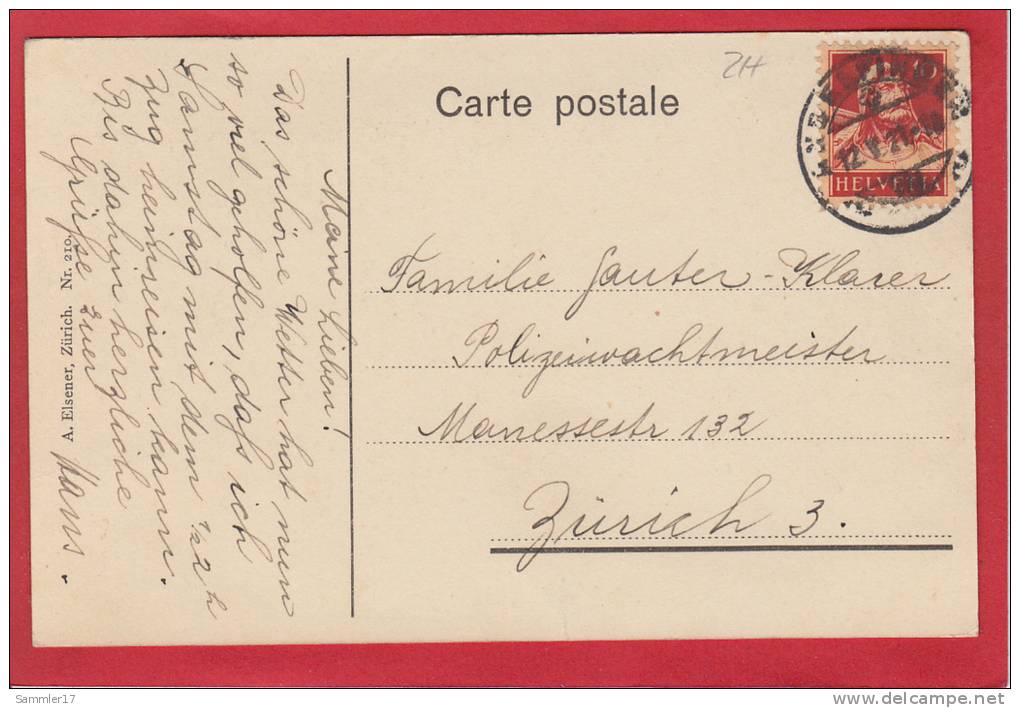 Carte postale
ZH
10
HELVETIA
12.V.21
Familie Sauter-Klarer
Polizeiwachtmeister
Manessestr 132
Zürich 3.
Meine Lieben!
Das schöne Wetter hat nun
so viel geholfen, dass ich
Samstag mit dem ½2 h
Zug heimreisen kann.
Bis dahin herzliche
Grüsse Euer
Hans.
A. Elsener, Zürich. Nr. 210.
Sammler17
delcampe.net